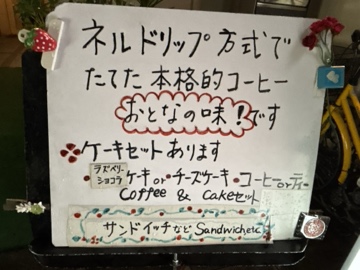 ネルドリップ方式で
たてた本格的コーヒー
おとなの味！です
ケーキセットあります
ラズベリーショコラ・ケーキorチーズケーキ・コーヒーorティー
Coffee & Cakeセット
サンドイッチなど Sandwich etc